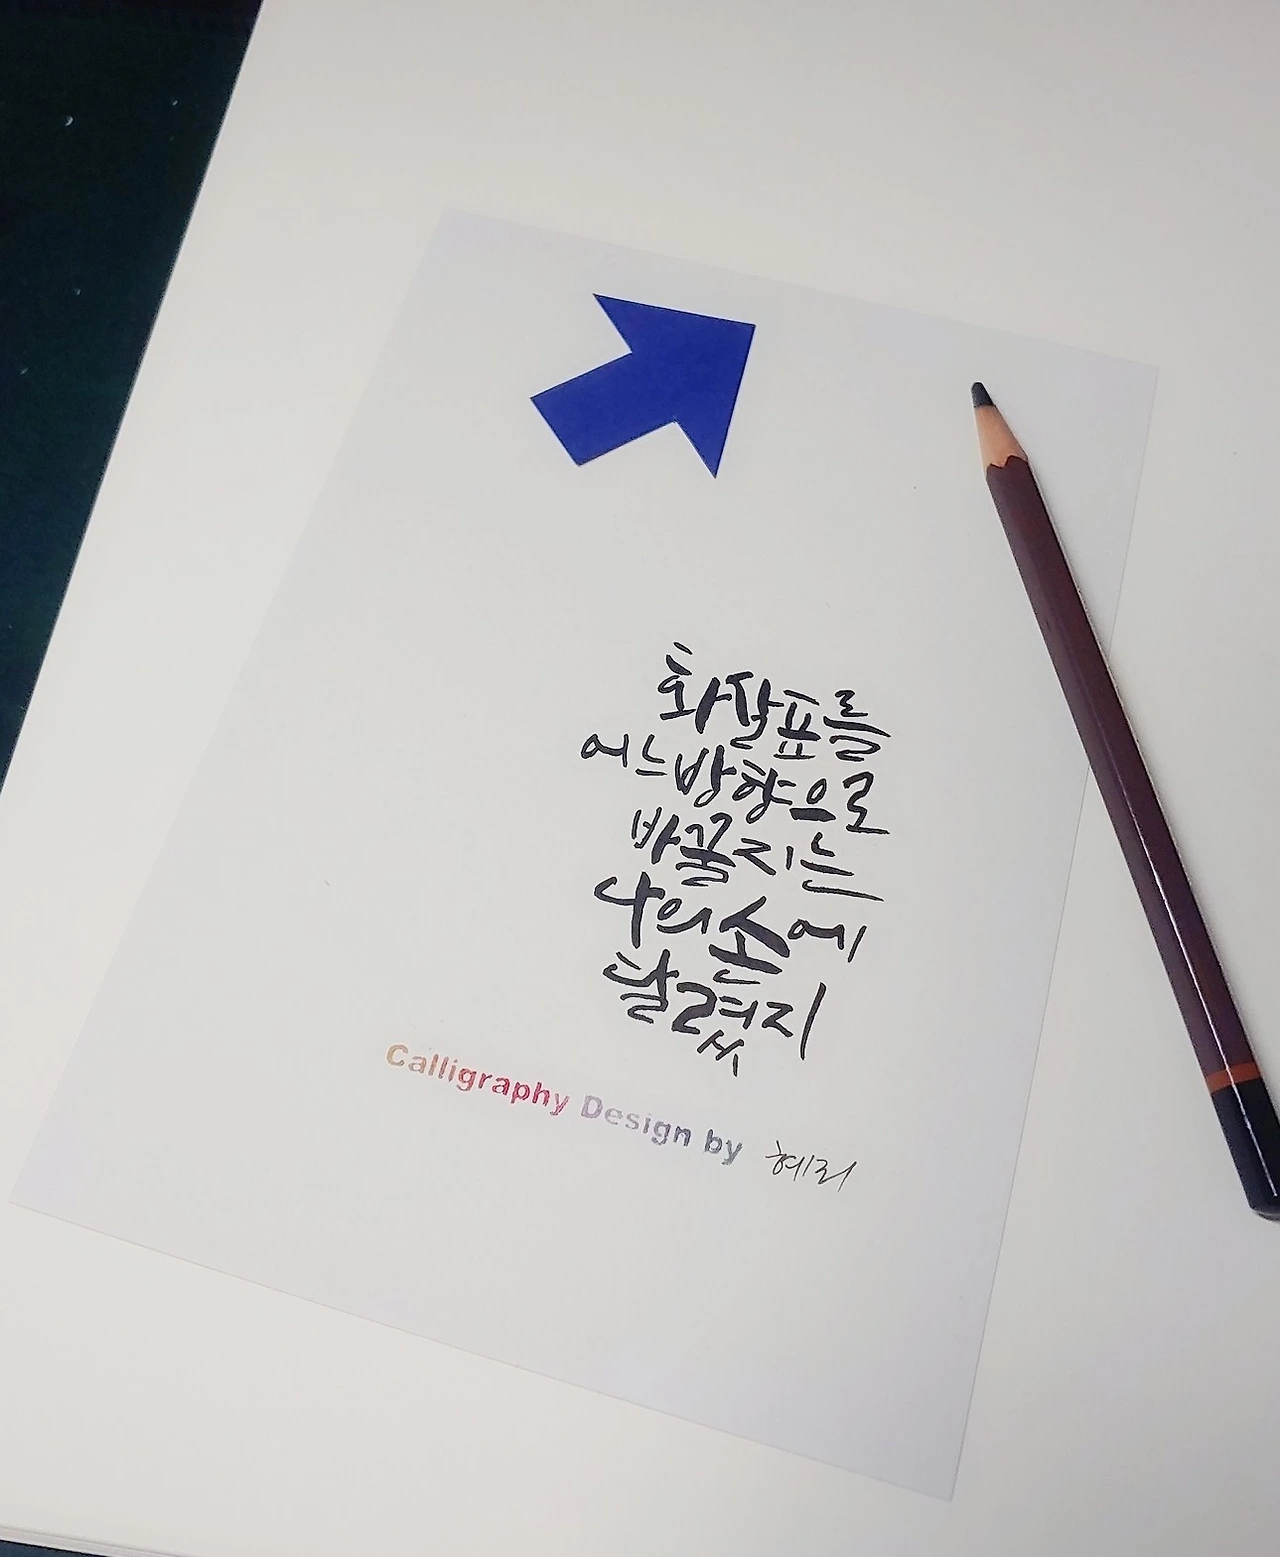 화살표를
어느방향으로
바꿀지는
나의손에
달렸지
Calligraphy Design by 혜리